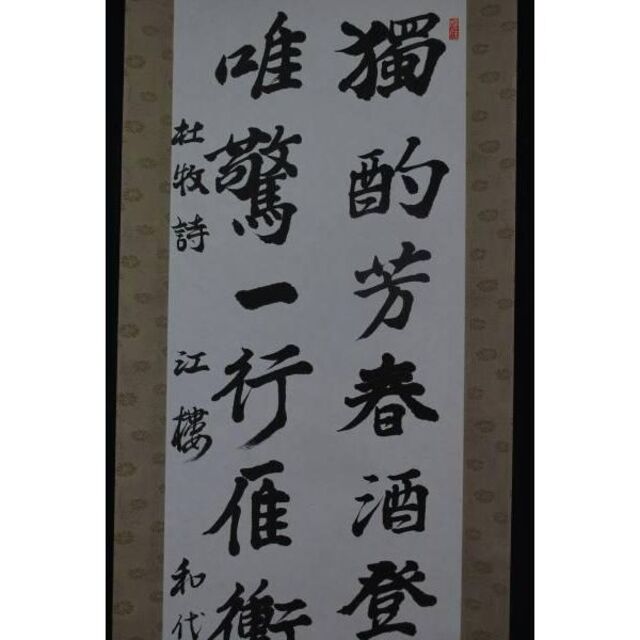 獨酌芳春酒登
唯驚一行雁衝
杜牧詩 江樓 和代